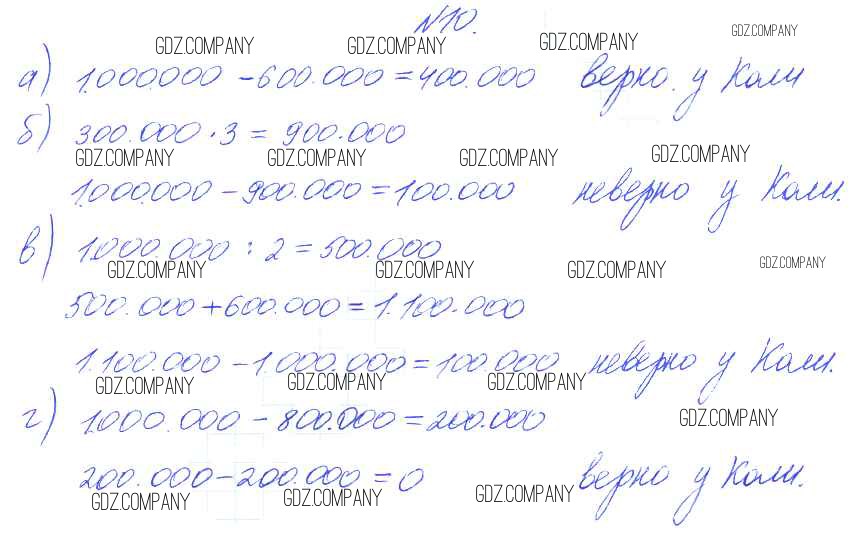 N10.
GDZ.COMPANY GDZ.COMPANY GDZ.COMPANY GDZ.COMPANY
а) 1.000.000 - 600.000 = 400.000 верно. у Коли
б) 300.000 · 3 = 900.000
GDZ.COMPANY GDZ.COMPANY GDZ.COMPANY GDZ.COMPANY
1.000.000 - 900.000 = 100.000 неверно у Коли.
в) 1.000.000 : 2 = 500.000
GDZ.COMPANY GDZ.COMPANY GDZ.COMPANY GDZ.COMPANY
500.000 + 600.000 = 1.100.000
1.100.000 - 1.000.000 = 100.000 неверно у Коли.
GDZ.COMPANY GDZ.COMPANY GDZ.COMPANY
г) 1.000.000 - 800.000 = 200.000 GDZ.COMPANY
200.000 - 200.000 = 0 верно у Коли.
GDZ.COMPANY GDZ.COMPANY GDZ.COMPANY